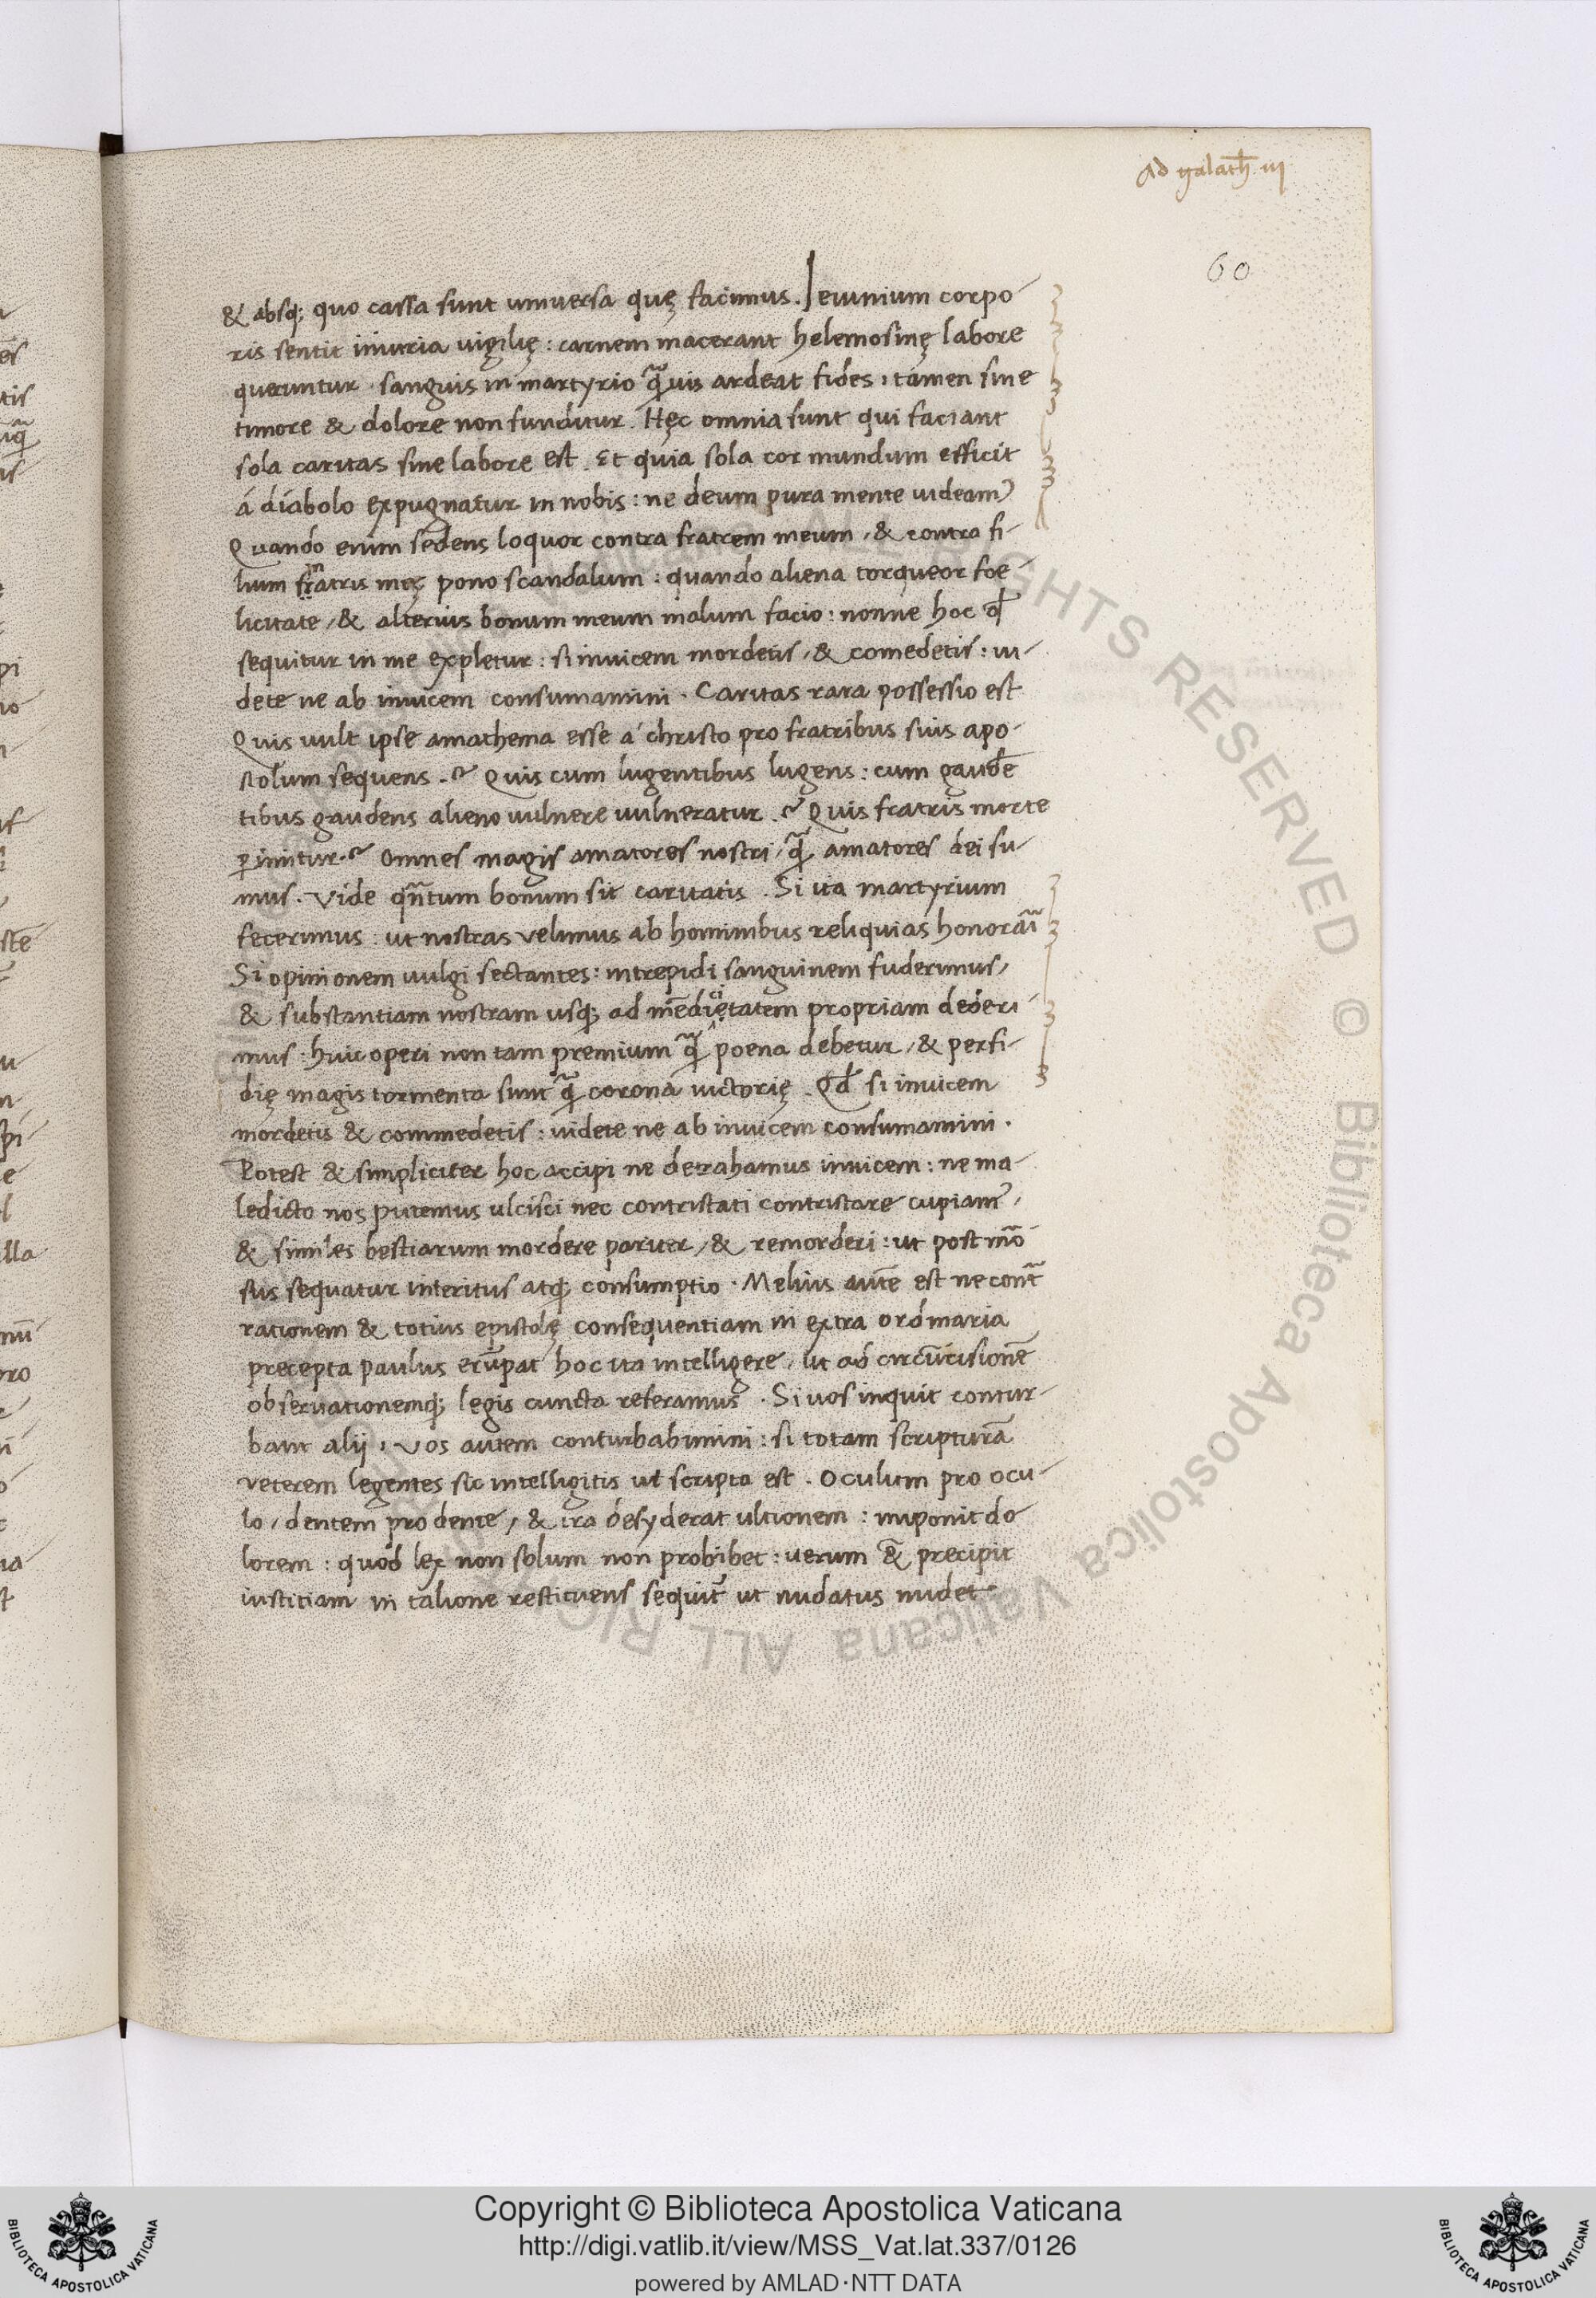 Ad galath̄ iij
60
& absq; quo cassa sunt uniuersa quę facimus. Ieiunium corpo-
ris sentit iniuria uigilię: carnem macerant helemosinę labore
queruntur. sanguis in martyrio q̃uis ardeat fides, tamen sine
timore & dolore non funditur. Hęc omnia sunt qui faciant
sola caritas sine labore est. Et quia sola cor mundum efficit
á diabolo expugnatur in nobis: ne deum pura mente uideam̃
Quando enim sedens loquor contra fratrem meum, & contra fi-
lium fratris meę pono scandalum: quando aliena torqueor foe-
licitate, & alterius bonum meum malum facio: nonne hoc qđ
sequitur in me expletur: si inuicem mordetis, & comedetis: ui-
dete ne ab inuicem consumamini. Caritas rara possessio est
Quis uult ipse amathema esse á christo pro fratribus suis apo-
stolum sequens.? Quis cum lugentibus lugens: cum gaudē
tibus gaudens alieno uulnere uulneratur.? Quis fratris morte
ꝑimitur.? Omnes magis amatores nostri, q̃ amatores dei su-
mus. Vide qñtum bonum sit caritatis. Si ita martyrium
fecerimus: ut nostras velimus ab hominibus reliquias honorãi
Si opinionem uulgi sectantes: intrepidi sanguinem fuderimus,
& substantiam nostram usq; ad mēdicitatem propriam dederi-
mus: huic operi non tam premium q̃ poena debetur, & perfi-
dię magis tormenta sunt q̃ corona uictorię. Qđ si inuicem
mordetis & commedetis: uidete ne ab inuicem consumamini.
Potest & simpliciter hoc accipi ne detrahamus inuicem: ne ma-
ledicto nos putemus ulcisci nec contristati contristare cupiam̃,
& similes bestiarum mordere pariter, & remorderi: ut post mõ
sus sequatur interitus atq; consumptio. Melius autē est ne cont̃
rationem & totius epistolę consequentiam in extra ordinaria
precepta paulus erūpat hoc ita intelligere, ut ad circūcisionē
obseruationemq; legis cuncta referamus. Si uos inquit contur-
bant alij, vos autem conturbabimini: si totam scripturā
veterem legentes sic intelligitis ut scripta est. Oculum pro ocu-
lo, dentem pro dente, & ira desyderat ultionem: imponit do
lorem: quod lex non solum non prohibet: uerum & precipit
iustitiam in talione restituens sequit̃ ut nudatus nudet
Copyright © Biblioteca Apostolica Vaticana
http://digi.vatlib.it/view/MSS_Vat.lat.337/0126
powered by AMLAD·NTT DATA